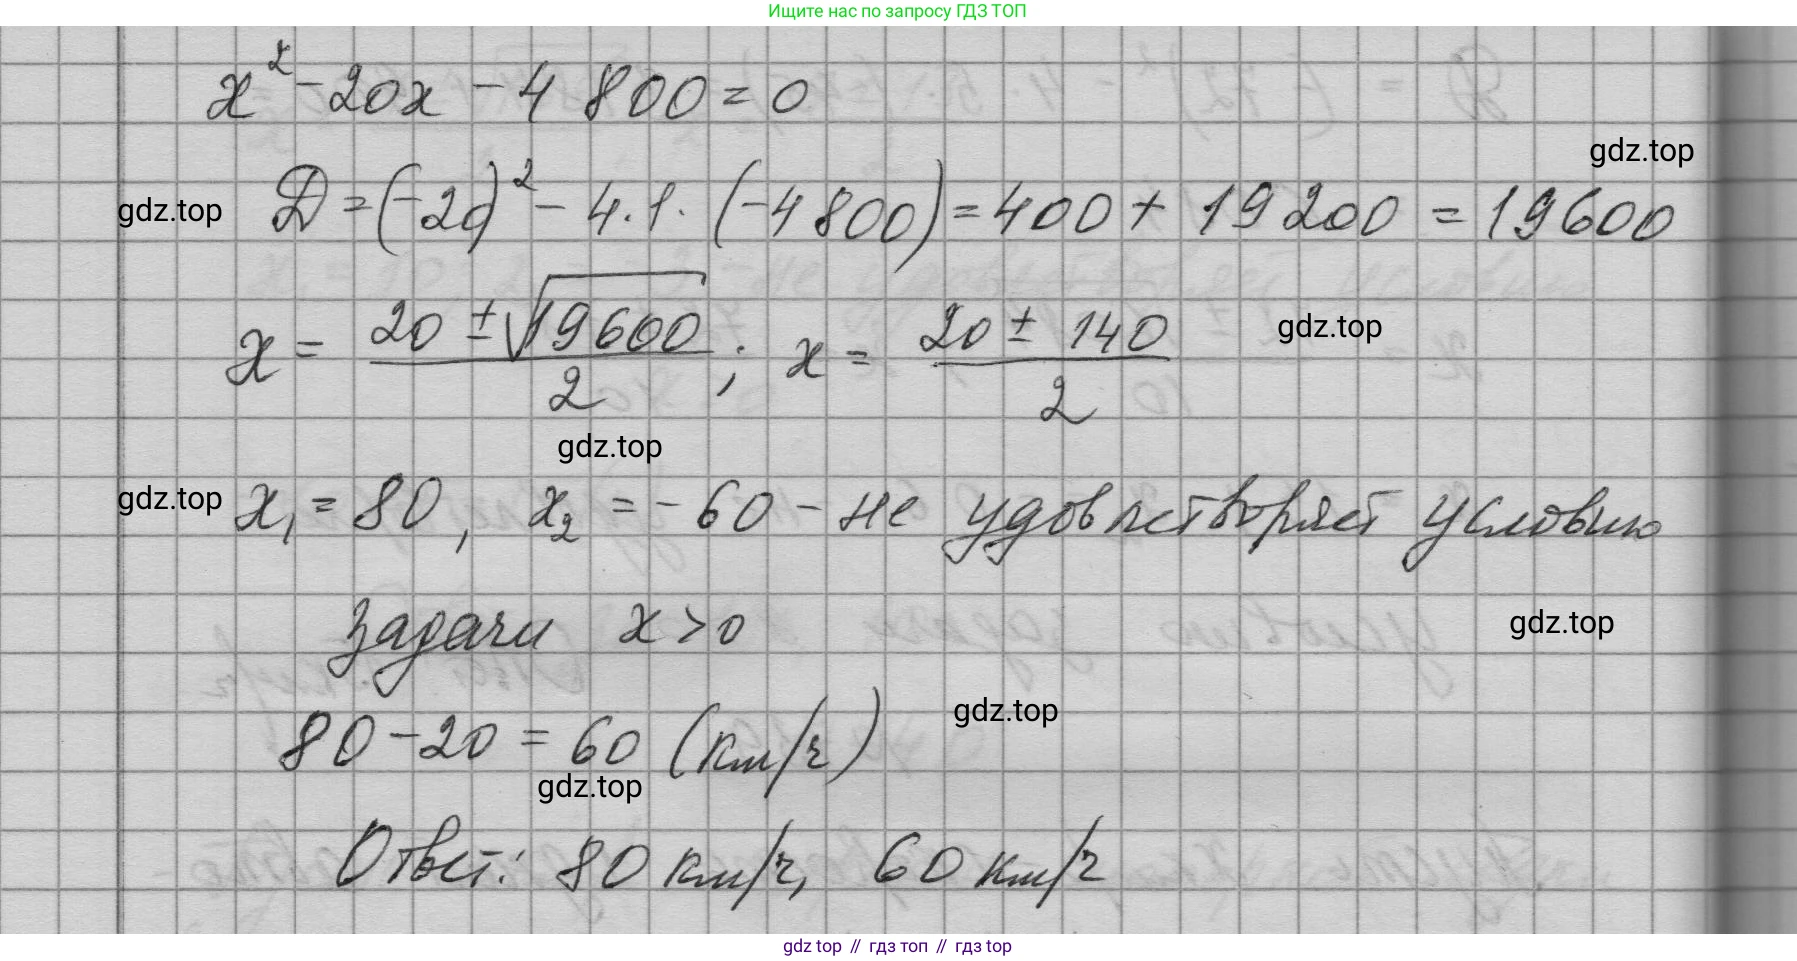 Ищите нас по запросу ГДЗ ТОП
x² - 20x - 4 800 = 0
gdz.top
gdz.top
D = (-20)² - 4 · 1 · (-4 800) = 400 + 19 200 = 19600
x = (20 ± √19600) / 2 ; x = (20 ± 140) / 2
gdz.top
gdz.top
gdz.top
x₁ = 80, x₂ = -60 - не удовлетворяет условию
задачи x > 0
gdz.top
80 - 20 = 60 (км/ч)
gdz.top
gdz.top
Ответ: 80 км/ч, 60 км/ч
gdz top // гдз топ // гдз top